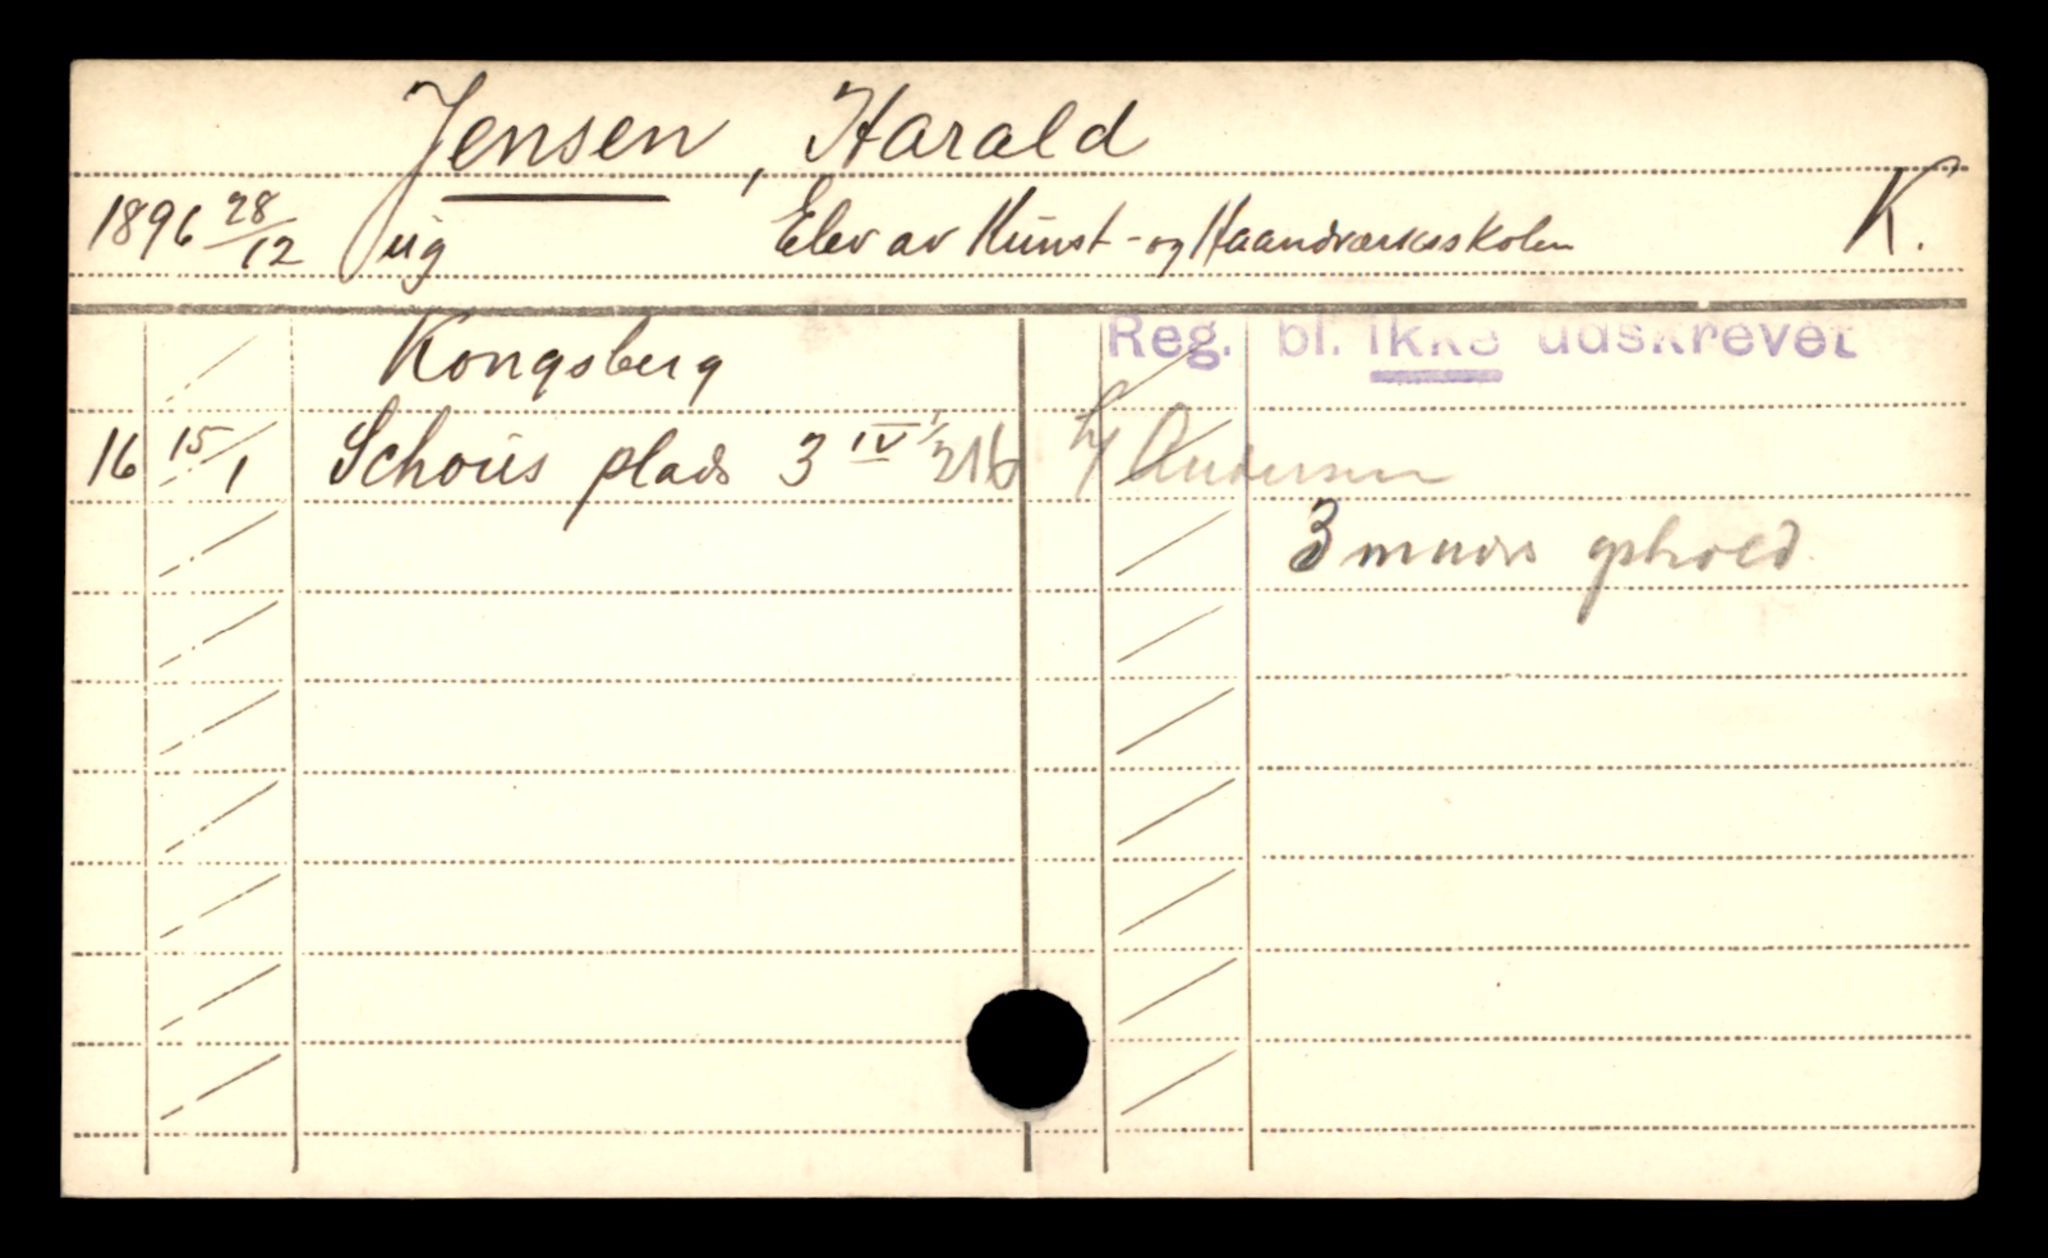 Jensen, Harald
1896 28/12 ug Elev av Kunst- og Haandværksskolen K.
Kongsberg Reg. bl. ikke udskrevet
16 15/1 Schous plads 3 IV 1/216 h/ Andersen
3 mnds ophold